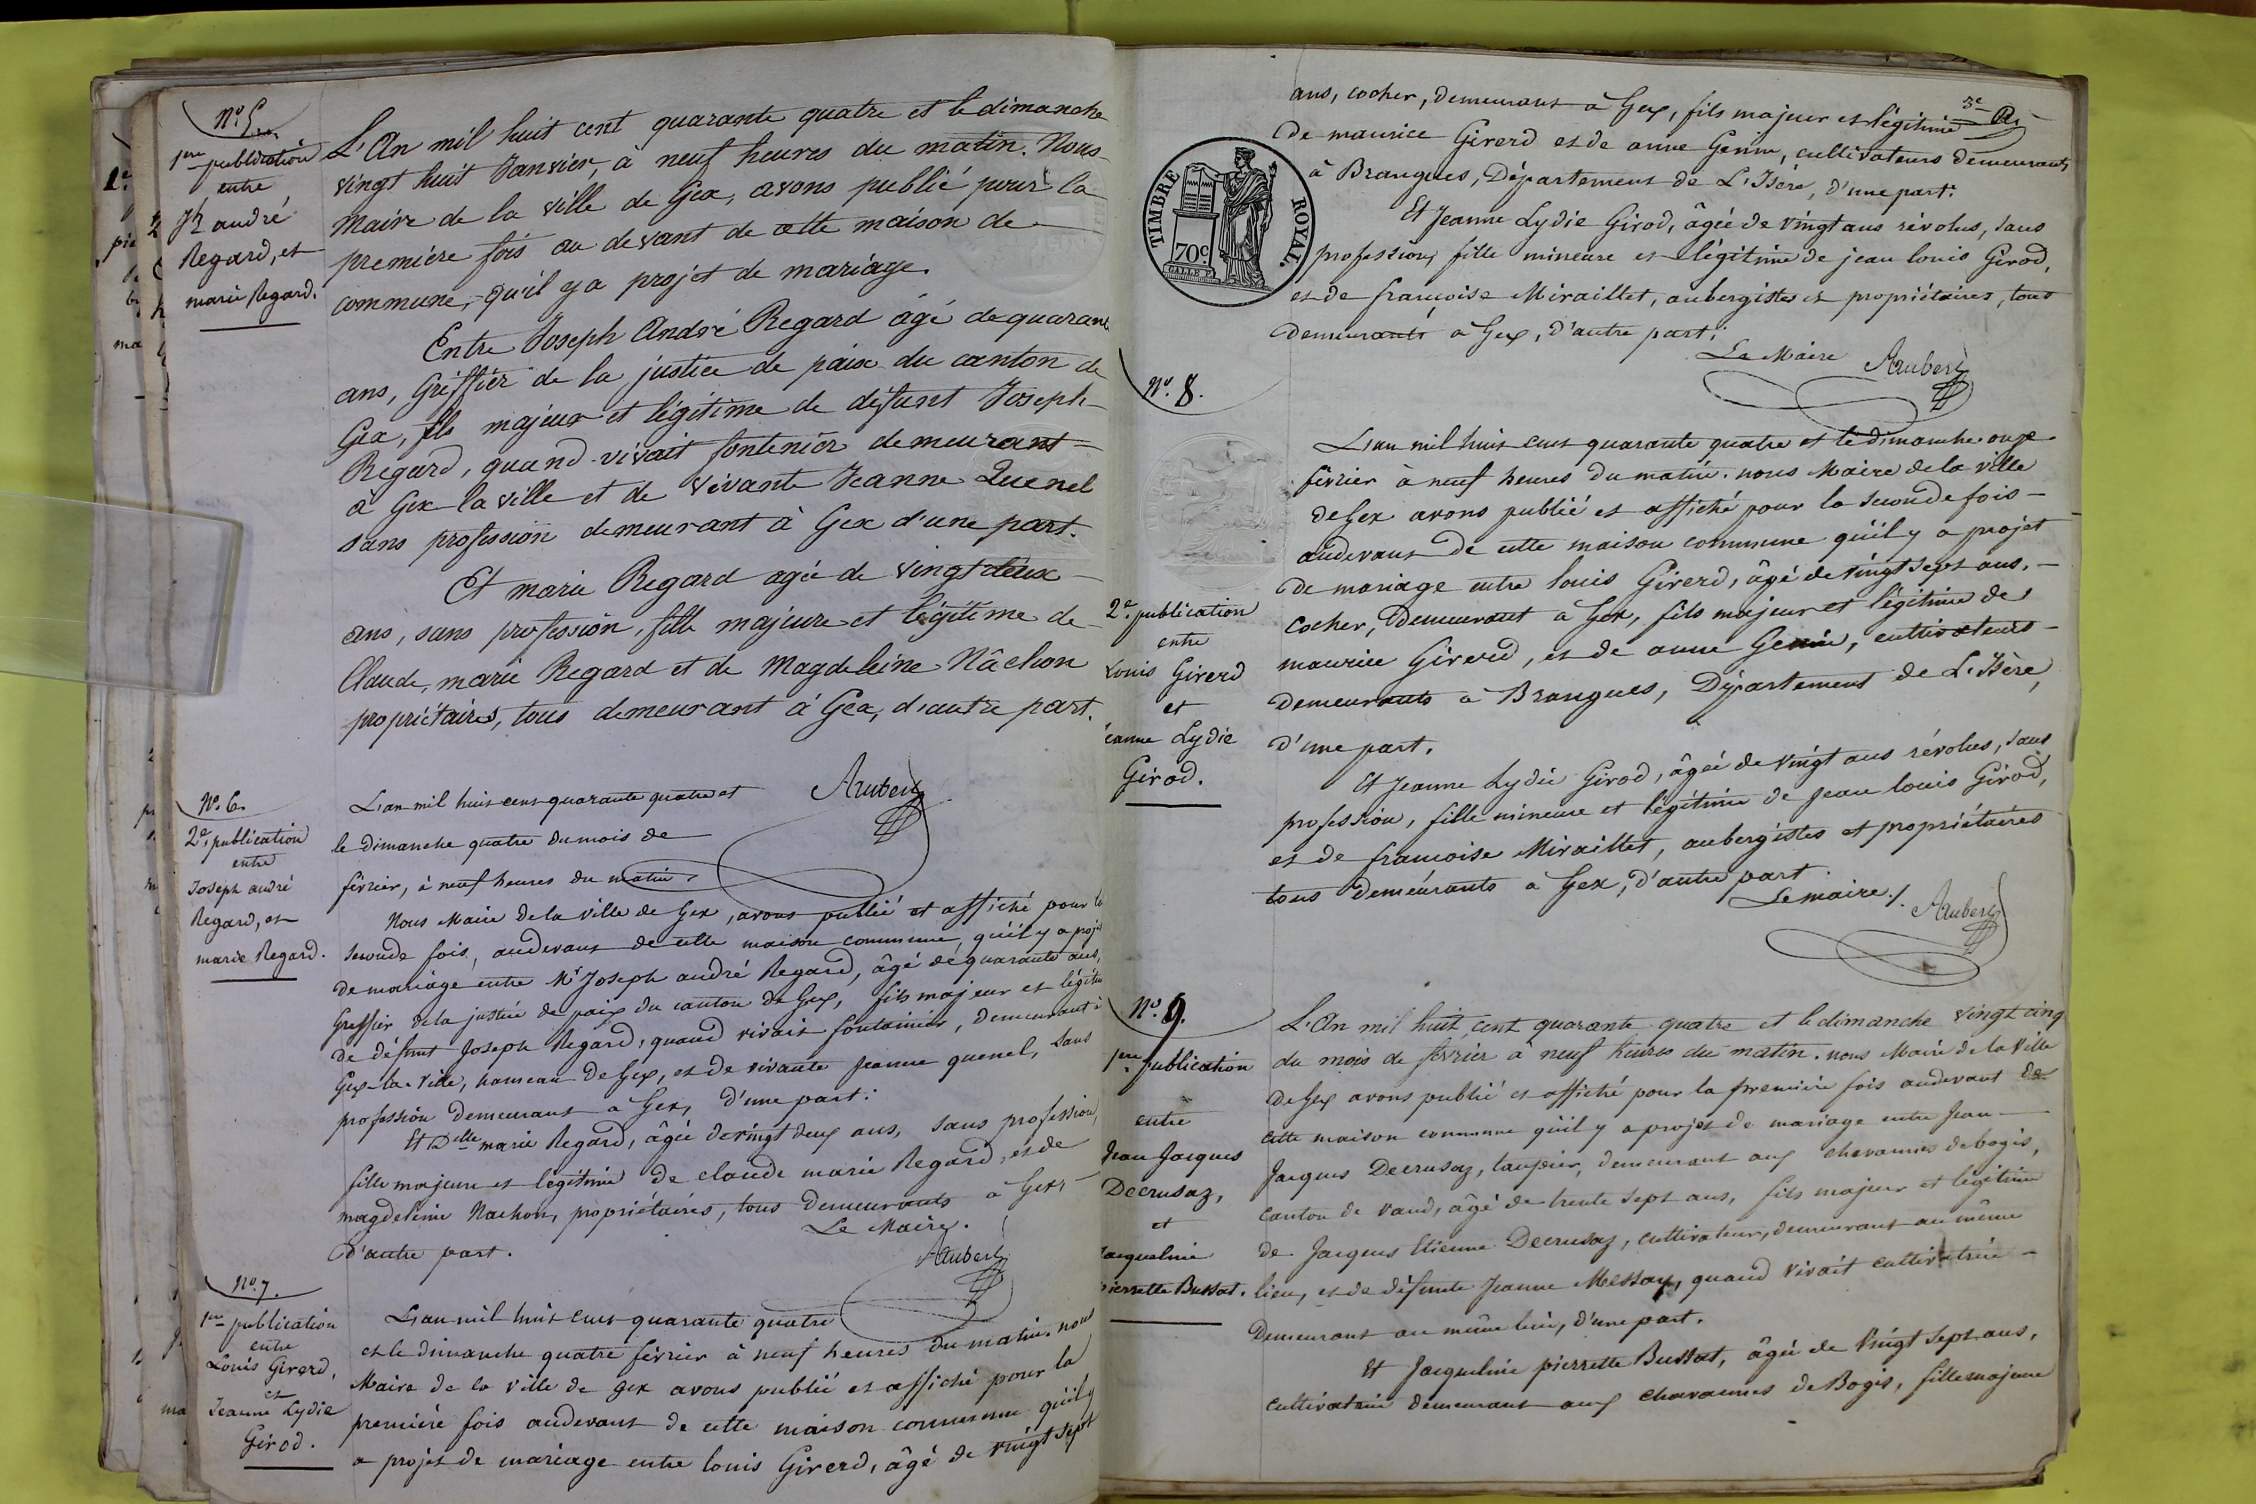 N.º 5.
1ère publication
entre
Jh andré
Regard, et
marie Regard.
L'An mil huit cent quarante quatre et le dimanche
vingt huit Janvier, à neuf heures du matin. Nous
Maire de la ville de Gex, avons publié pour la
première fois au devant de cette maison de
commune, qu'il y a projet de mariage.
Entre Joseph André Regard âgé de quarante
ans, Greffier de la justice de paix du canton de
Gex, fils majeur et légitime de défunt Joseph
Regard, quand vivait fontenier demeurant
à Gex-la-ville et de vivante Jeanne Quenel
sans profession demeurant à Gex d'une part.
Et marie Regard agée de vingt deux
ans, sans profession, fille majeure et légitime de
Claude, marie Regard et de Magdeleine Nâchon
propriétaires, tous demeurant à Gex, d'autre part.
Aubert
N.º 6.
2e publication
entre
Joseph andré
Regard, et
marie Regard.
L'an mil huit cent quarante quatre et
le dimanche quatre du mois de
février, à neuf heures du matin.
Nous Maire de la ville de Gex, avons publié et affiché pour la
seconde fois, audevant de cette maison commune, qu'il y a projet
de mariage entre Mr Joseph andré Regard, âgé de quarante ans,
Greffier de la justice de paix du canton de Gex, fils majeur et légitime
de défunt Joseph Regard, quand vivait fontainier, demeurant à
Gex-la-Ville, hameau de Gex, et de vivante Jeanne quenel, sans
profession demeurant à Gex, d'une part:
Et Delle marie Regard, âgée de vingt deux ans, sans profession,
fille majeure et légitime de claude marie Regard, et de
magdeleine Nachon, propriétaires, tous demeurants à Gex,
d'autre part.
Le Maire.
Aubert
N.º 7.
1ère publication
entre
Louis Girerd,
et
Jeanne Lydie
Girod.
L'an mil huit cent quarante quatre
et le dimanche quatre février à neuf heures du matin. nous
Maire de la ville de gex avons publié et affiché pour la
première fois audevant de cette maison commune qu'il y
a projet de mariage entre louis Girerd, âgé de vingt sept
3e
ans, cocher, demeurant à Gex, fils majeur et légitime
de maurice Girerd et de anne Genin, cultivateurs demeurants
à Brangues, Département de L'Isère, d'une part:
TIMBRE ROYAL.
70c
Et Jeanne Lydie Girod, âgée de vingt ans révolus, sans
profession, fille mineure et légitime de jean louis Girod,
et de françoise Miraillet, aubergistes et propriétaires, tous
demeurants à Gex, d'autre part:
Le Maire Aubert
N.º 8.
2e publication
entre
Louis Girerd
et
eanne Lydie
Girod.
L'an mil huit cent quarante quatre et le dimanche onze
février à neuf heures du matin. nous Maire de la ville
de Gex avons publié et affiché pour la seconde fois
audevant de cette maison commune qu'il y a projet
de mariage entre louis Girerd, âgé de vingt sept ans,
cocher, demeurant à Gex, fils majeur et légitime de
maurice Girerd, et de anne Genin, cultivateurs
demeurants à Brangues, Département de L'Isère,
d'une part.
Et Jeanne Lydie Girod, âgée de vingt ans révolus, sans
profession, fille mineure et légitime de Jean louis Girod,
et de francoise Miraillet, aubergistes et propriétaires
tous demeurants à Gex, d'autre part.
Le maire.
Aubert
N.º 9.
1ère publication
entre
Jean Jacques
Decrusaz,
et
acqueline
ierrette Bussat.
L'An mil huit cent quarante quatre et le dimanche vingt cinq
du mois de février à neuf heures du matin. nous Maire de la Ville
de Gex avons publié et affiché pour la première fois audevant de
cette maison commune qu'il y a projet de mariage entre Jean
Jacques Decrusaz, taupier, demeurant aux chavannes de bogis,
canton de vaud, âgé de trente sept ans, fils majeur et légitime
de Jacques Etienne Decrusaz, cultivateur, demeurant au même
lieu, et de défunte Jeanne Messay, quand vivait cultivatrice
demeurant au même lieu, d'une part.
Et Jacqueline pierrette Bussat, âgée de vingt sept ans,
cultivatrice demeurant aux chavannes de Bogis, fille majeure